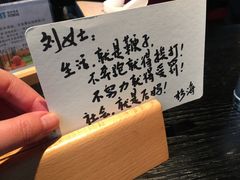 刘女士：
生活，就是鞭子，
不奔跑就得挨打！
不努力就得受罚！
社会，就是后妈！